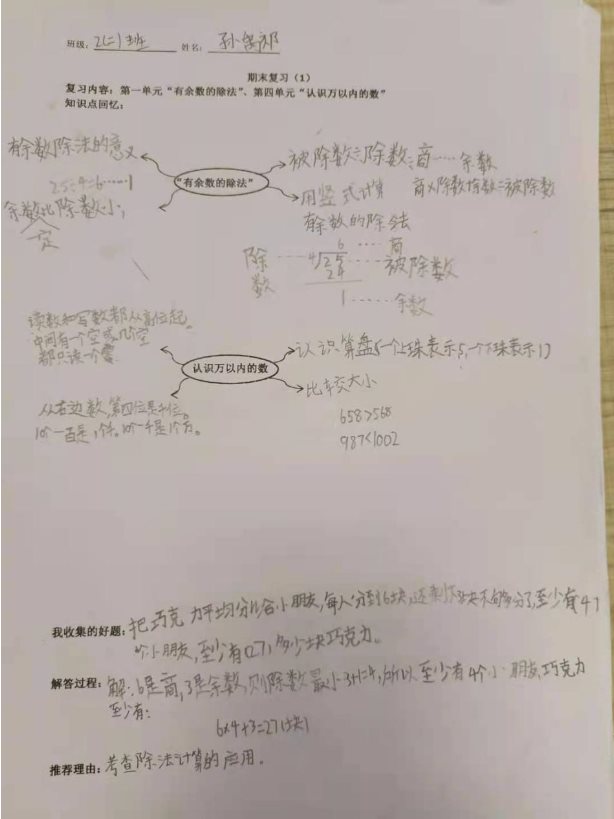 班级: 2(二)班 姓名: 孙
期末复习（1）
复习内容：第一单元“有余数的除法”、第四单元“认识万以内的数”
知识点回忆：
有余数除法的意义
25÷4=6……1
余数一定比除数小,
“有余数的除法”
被除数÷除数=商……余数
商×除数+余数=被除数
用竖式计算
有余数的除法
6……商
除数……4√25……被除数
24
1……余数
读数和写数都从高位起。
中间有一个空或几个空
都只读一个零
从右边数,第四位是千位。
10个一百是1个千。10个一千是1个万。
认识万以内的数
认识算盘(一个上珠表示5,一个下珠表示1)
比较大小
658>568
987<1002
我收集的好题：把巧克力平均分给小朋友,每人分到6块,还剩下3块不够分了,至少有(4)
个小朋友,至少有(27)多少块巧克力。
解答过程：解:6是商,3是余数,则除数最小3+1=4,所以至少有4个小朋友,巧克力
至少有:
6×4+3=27(块)
推荐理由：考查除法计算的应用。